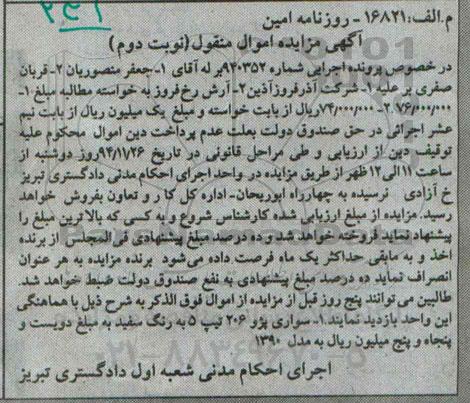 م.الف: ۱۶۸۲۱ - روزنامه امین
آگهی مزایده اموال منقول (نوبت دوم)
در خصوص پرونده اجرایی شماره ۹۴۰۳۵۲ بر له آقای ۱-جعفر منصوریان ۲-قربان
صفری بر علیه ۱-شرکت آذرفروز آذین ۲-آرش رخ‌فروز به خواسته مطالبه مبلغ ۱-
۷۶/۰۰۰/۰۰۰-۲ ۷۴/۰۰۰/۰۰۰ریال از بابت خواسته و مبلغ یک میلیون ریال از بابت نیم
عشر اجرائی در حق صندوق دولت بعلت عدم پرداخت دین اموال محکوم علیه
توقیف دین از ارزیابی و طی مراحل قانونی در تاریخ ۹۴/۱۱/۲۶روز دوشنبه از
ساعت ۱۱الی۱۲ ظهر از طریق مزایده در واحد اجرای احکام مدنی دادگستری تبریز
خ آزادی نرسیده به چهارراه ابوریحان- اداره کل کار و تعاون بفروش خواهد
رسید. مزایده از مبلغ ارزیابی شده کارشناس شروع و به کسی که بالاترین مبلغ را
پیشنهاد نماید فروخته خواهد شد و ده درصد مبلغ پیشنهادی فی المجلس از برنده
اخذ و به مابقی حداکثر یک ماه فرصت داده می‌شود برنده مزایده به هر عنوان
انصراف نماید ده درصد مبلغ پیشنهادی به نفع صندوق دولت ضبط خواهد شد.
طالبین می‌توانند پنج روز قبل از مزایده از اموال فوق الذکر به شرح ذیل با هماهنگی
این واحد بازدید نمایند ۱- سواری پژو ۲۰۶ تیپ ۵ به رنگ سفید به مبلغ دویست و
پنجاه و پنج میلیون ریال به مدل ۱۳۹۰
اجرای احکام مدنی شعبه اول دادگستری تبریز
۰۲۱-۸۸۳۴۹۶۷۰-۵